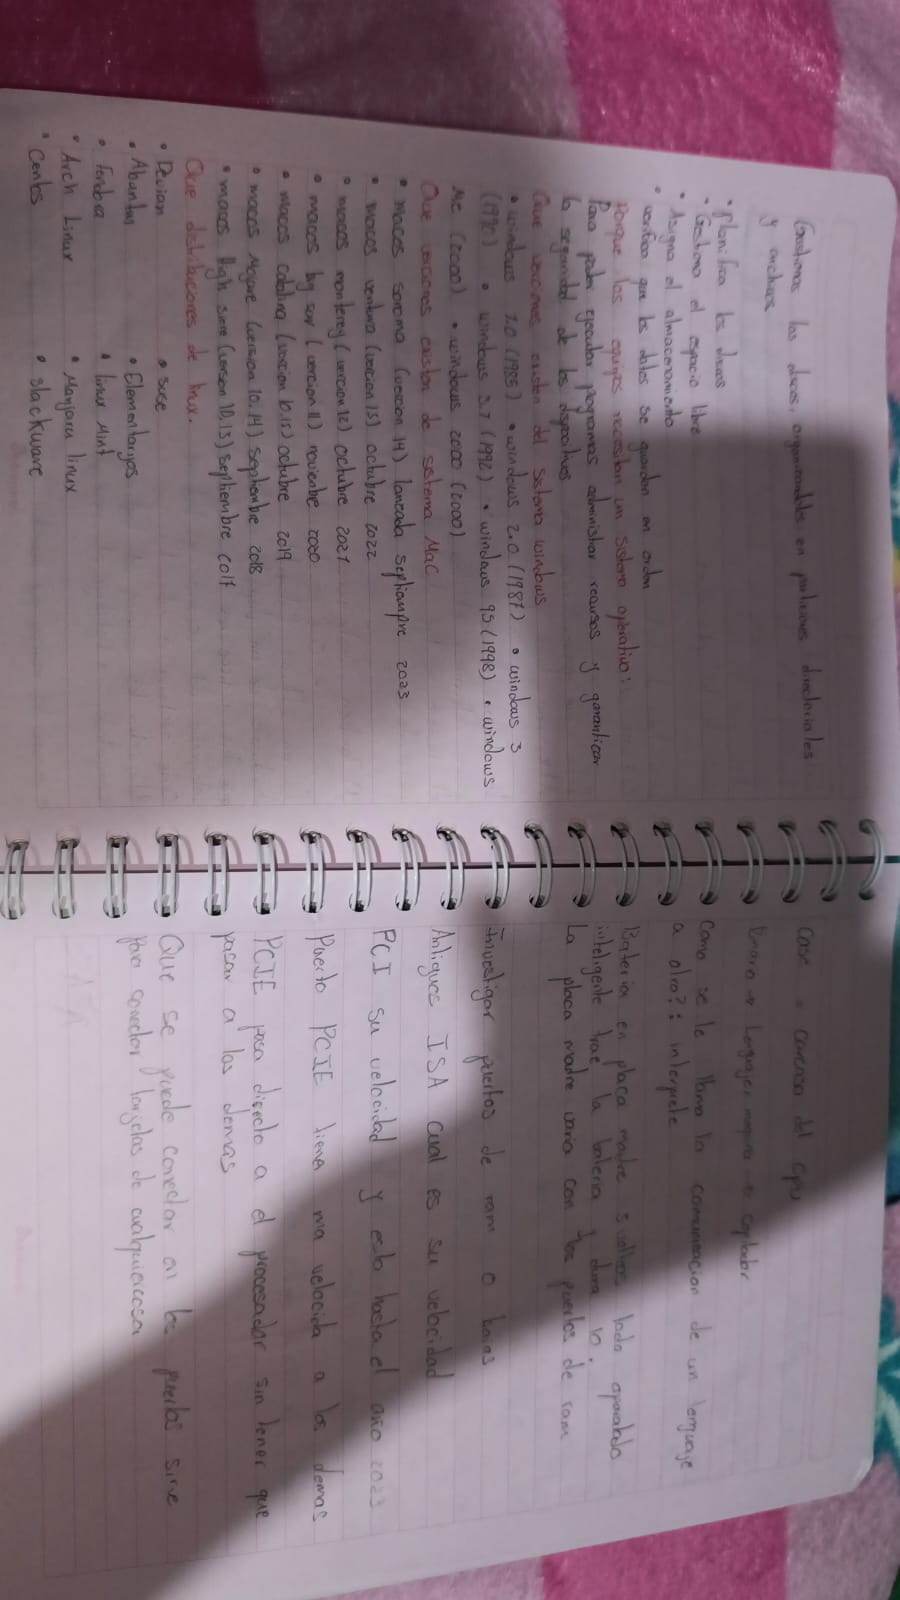 Gestionar los discos, organizandolos en particiones directoriales
y archivos
• planifica los discos
• Gestiona el espacio libre
• Asigna el almacenamiento
• verifica que los datos se guarden en orden
Porque los equipos necesitan un sistema operativo:
Para poder ejecutar programas administrar recursos y garantizar
la seguridad de los dispositivos
Que verciones existen del sistema windows
• windows 1.0 (1985) • windows 2.0 (1987) • windows 3
(1990) • windows 3.1 (1992) • windows 95 (1998) • windows
Me (2000) • windows 2000 (2000)
Que verciones existen de sistema Mac
• macos sonoma (vercion 14) lanzada septiempre 2023
• macos ventura (vercion 13) octubre 2022
• macos monterey (vercion 12) octubre 2021
• macos big sur (vercion 11) noviembre 2020
• macos catalina (vercion 10.15) octubre 2019
• macos Mojave (version 10.14) septiembre 2018
• macos High siera (version 10.13) septiembre 2017
Que distribuciones de linux.
• Devian • suse
• Abuntu • Elementaryos
• Fendra • linux Mint
• Arch Linux • Manjaru linux
• Centos • slackware
Case = carcasa del cpu
Binaro → Lenguaje maquina → copilador
Como se le llama la comunicacion de un lenguaje
a otro?: interprete
Bateria en placa madre 5 voltios todo aparatado
inteligente trae la bateria dura 10.
La placa madre varia con los puertos de ram
Investigar puertos de ram o baias
Antiguos ISA cual es su velocidad
PCI su velocidad y esto hasta el año 2023
Puerto PCIE tiene ma velocida a los demas
PCIE pasa directo a el procesador sin tener que
pasar a los demas
Que se puede conectar en los puertos sirve
para conectar tarjetas de cualquiercosa